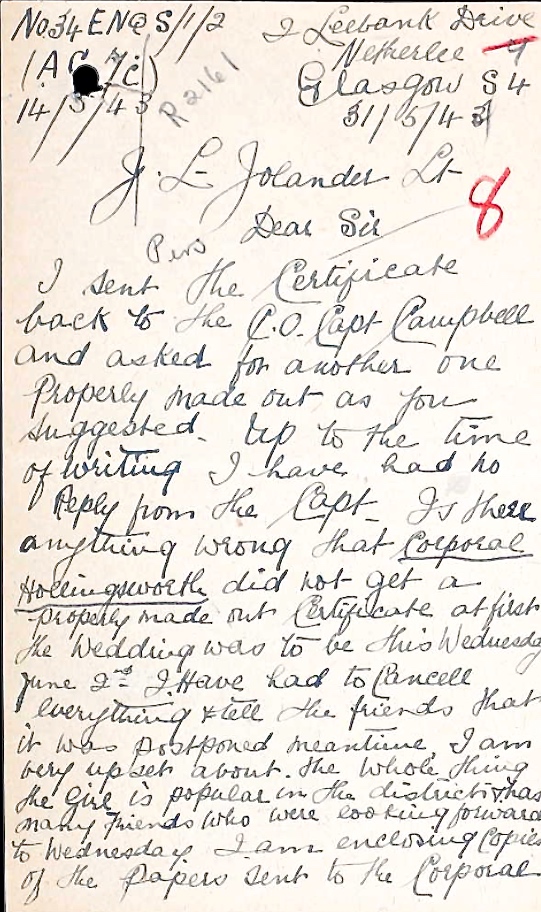 No 34 ENQ S/1/2 2 Leebank Drive
(A C 7c) Netherlee 9
R 2161 Glasgow S 4
14/5/43 31/5/43
J. L. Jolander Lt
8
Dear Sir
Pers
I sent the Certificate
back to the C.O. Capt Campbell
and asked for another one
Properly made out as you
suggested. Up to the time
of writing I have had no
Reply from the Capt Is there
anything wrong that Corporal
Hollingsworth did not get a
properly made out Certificate at first
the Wedding was to be this Wednesday
June 2nd I Have had to Cancell
everything & tell the friends that
it was postponed meantime, I am
very upset about. the whole thing
the Girl is popular in the district & has
many friends who were looking forward
to Wednesday I am enclosing Copies
of the Papers sent to the Corporal